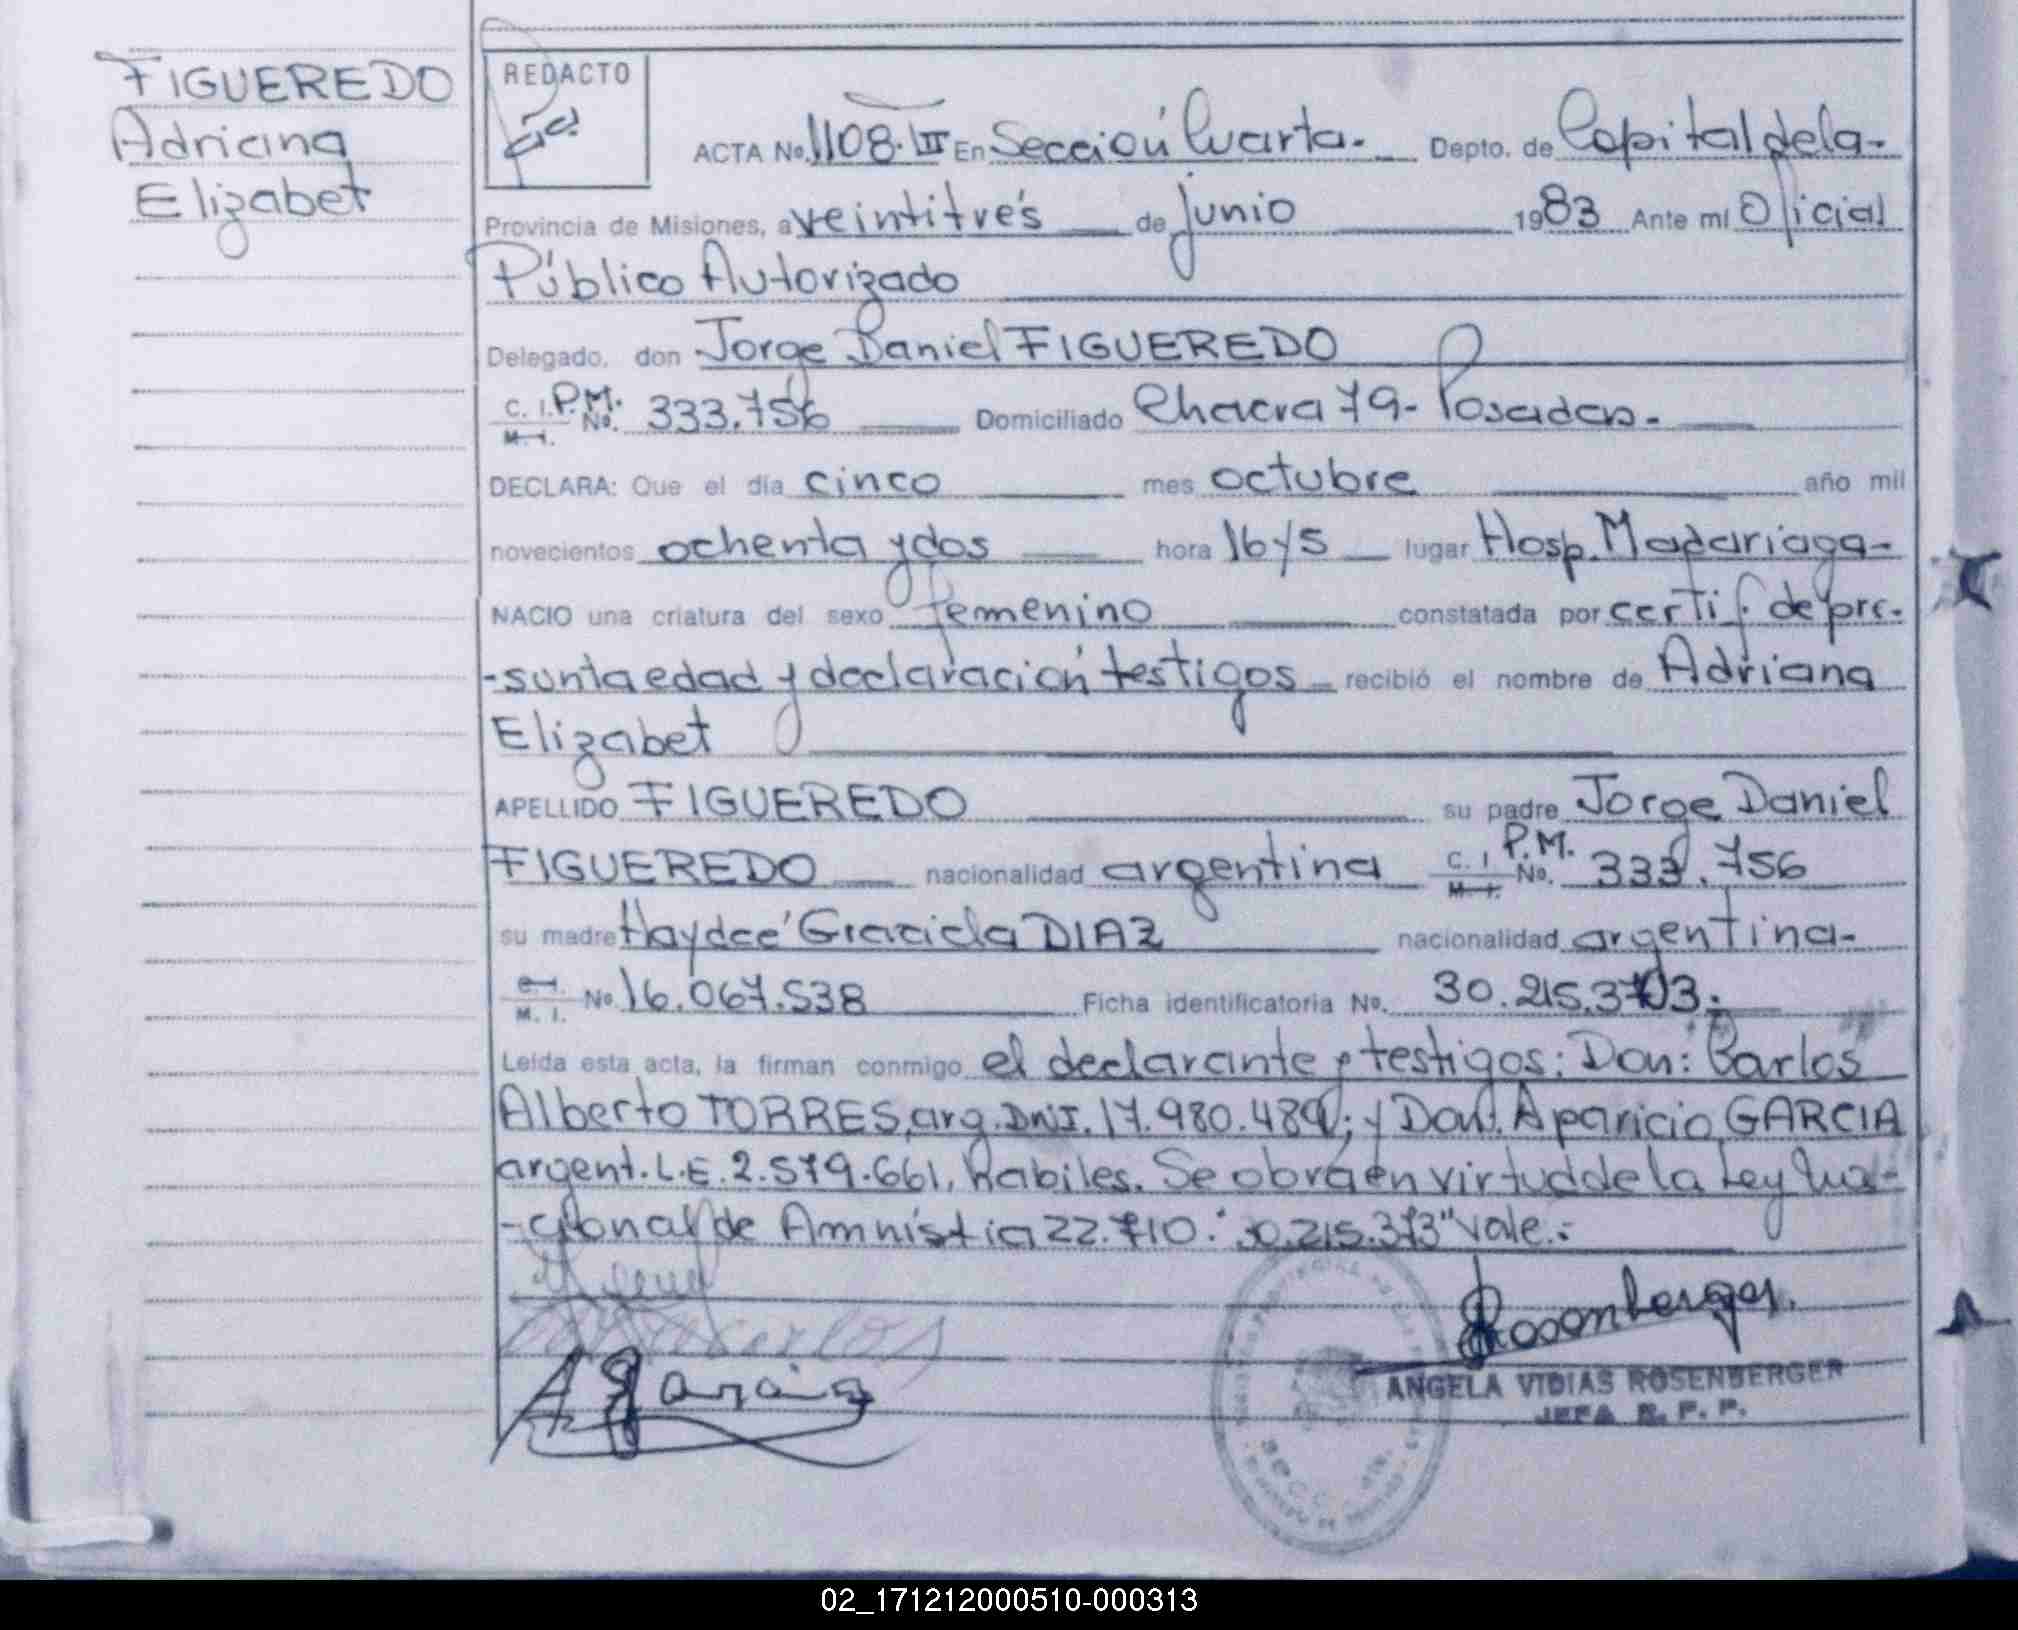 FIGUEREDO
Adriana
Elizabet
REDACTO
ACTA No. 1108.III En Sección Cuarta.- Depto. de Capital de la-
Provincia de Misiones, a veintitrés de junio 1983 Ante mi Oficial
Público Autorizado
Delegado, don Jorge Daniel FIGUEREDO
C. I. P.M. No. 333.756 Domiciliado Chacra 79- Posadas.-
M. I.
DECLARA: Que el día cinco mes octubre año mil
novecientos ochenta y dos hora 16 y 5 lugar Hosp. Madariaga-
NACIO una criatura del sexo femenino constatada por certif. de pre-
-sunta edad y declaración testigos recibió el nombre de Adriana
Elizabet
APELLIDO FIGUEREDO su padre Jorge Daniel
FIGUEREDO nacionalidad argentina C. I. P.M. No. 333.756
M. I.
su madre Haydeé Graciela DIAZ nacionalidad argentina-
C. I. No. 16.067.538 Ficha identificatoria No. 30.215.3703.
M. I.
Leída esta acta, la firman conmigo el declarante y testigos: Don: Carlos
Alberto TORRES, arg. DNI. 17.980.489; y Don. Aparicio GARCIA
argent. L.E. 2.579.661, habiles. Se obra en virtud de la Ley Na-
-cional de Amnistia 22.710. "30.215.373" vale.-
A Garcia
Rosenberger.
ANGELA VIDIAS ROSENBERGER
JEFA R. P. P.
02_171212000510-000313